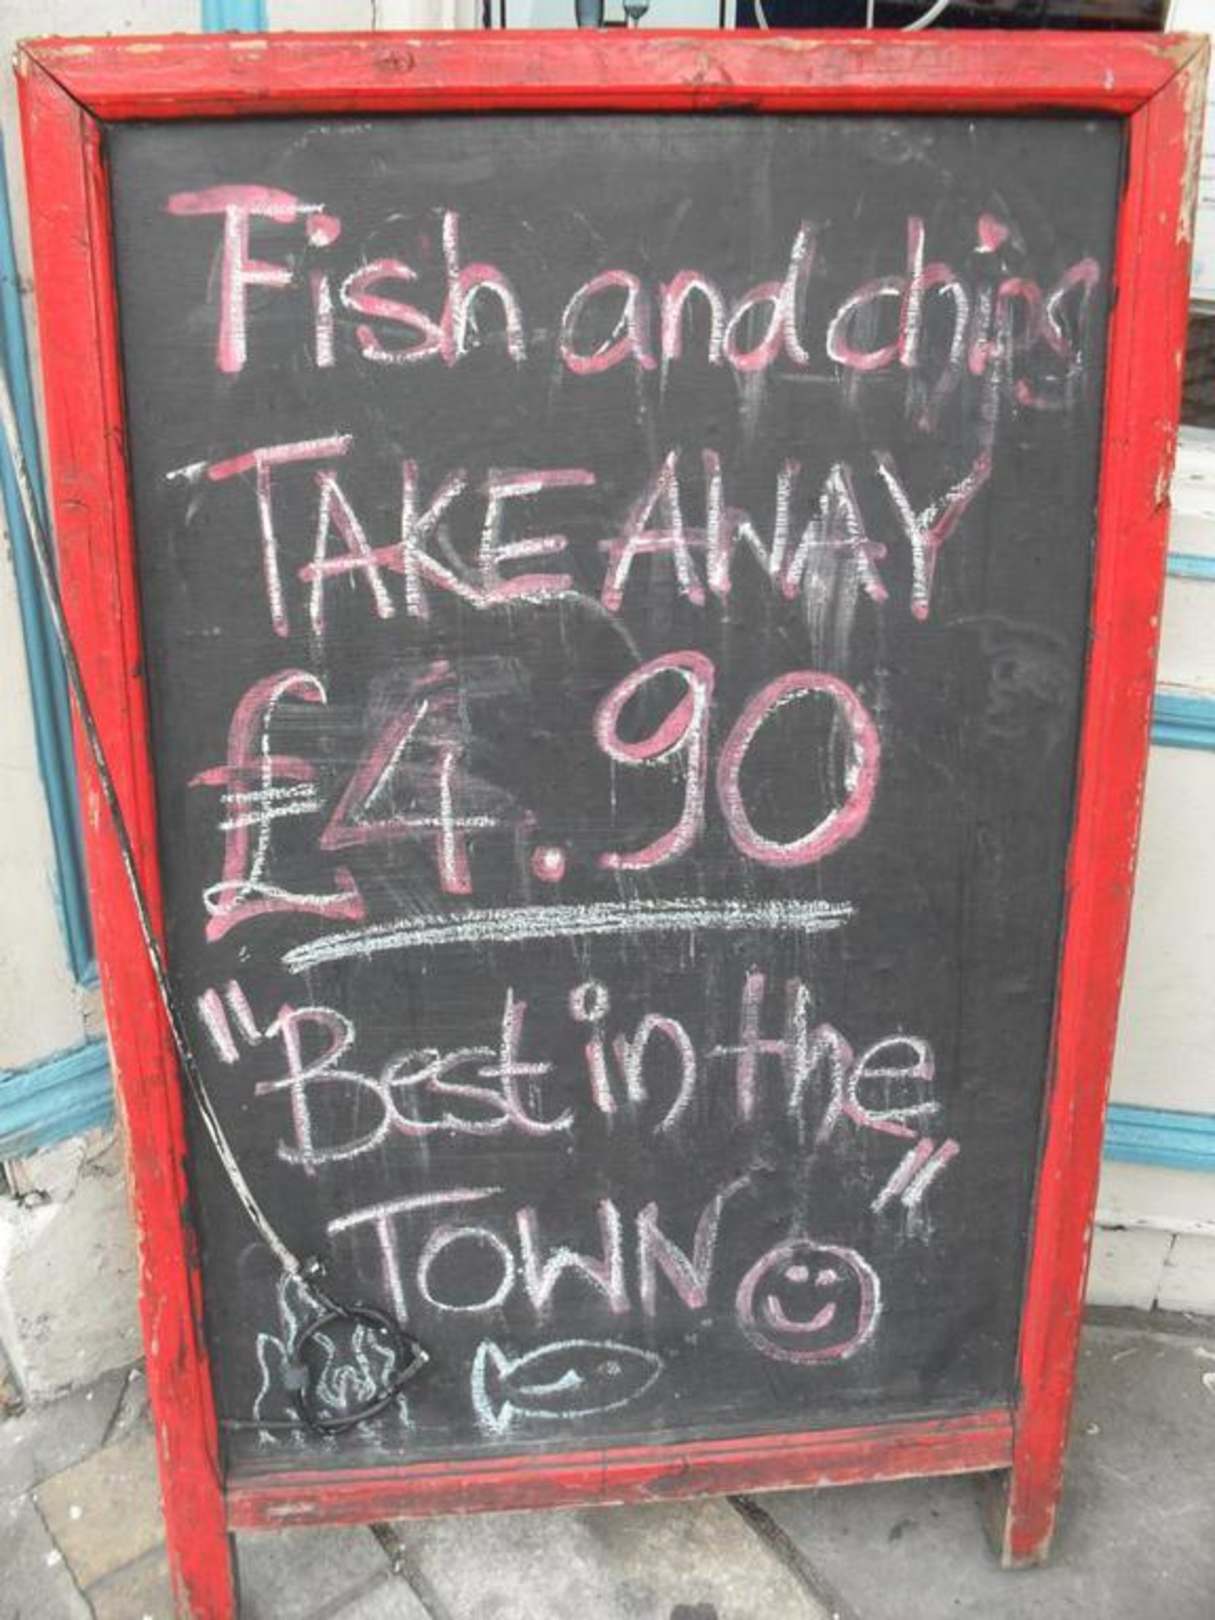 Fish and chips
TAKE AWAY
£4.90
"Best in the"
TOWN